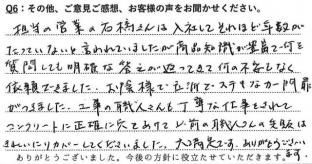 Q6：その他、ご意見ご感想、お客様の声をお聞かせください。
担当の営業の石橋さんは入社してそれほど年数が
たっていないと言われていましたが商品知識が豊富で何を
質問しても明確な答えが返ってきて何の不安もなく
依頼できました。お陰様で立派でステキなカーポート
がつきました。工事の職人さんも丁寧な仕事をされて
コンクリートに正確に穴をあけて以前の職人さんの失敗は
きれいにリカバーしてくださいました。大満足です。ありがとうございます
ありがとうございました。今後の方針に役立たせていただきます。